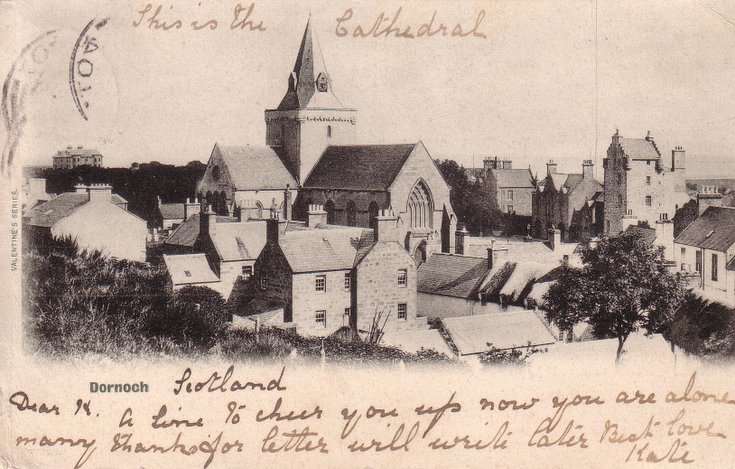 This is the Cathedral
VALENTINE'S SERIES
Dornoch Scotland
Dear K. A line to cheer you up now you are alone
many thanks for letter will write later Best love
Kate